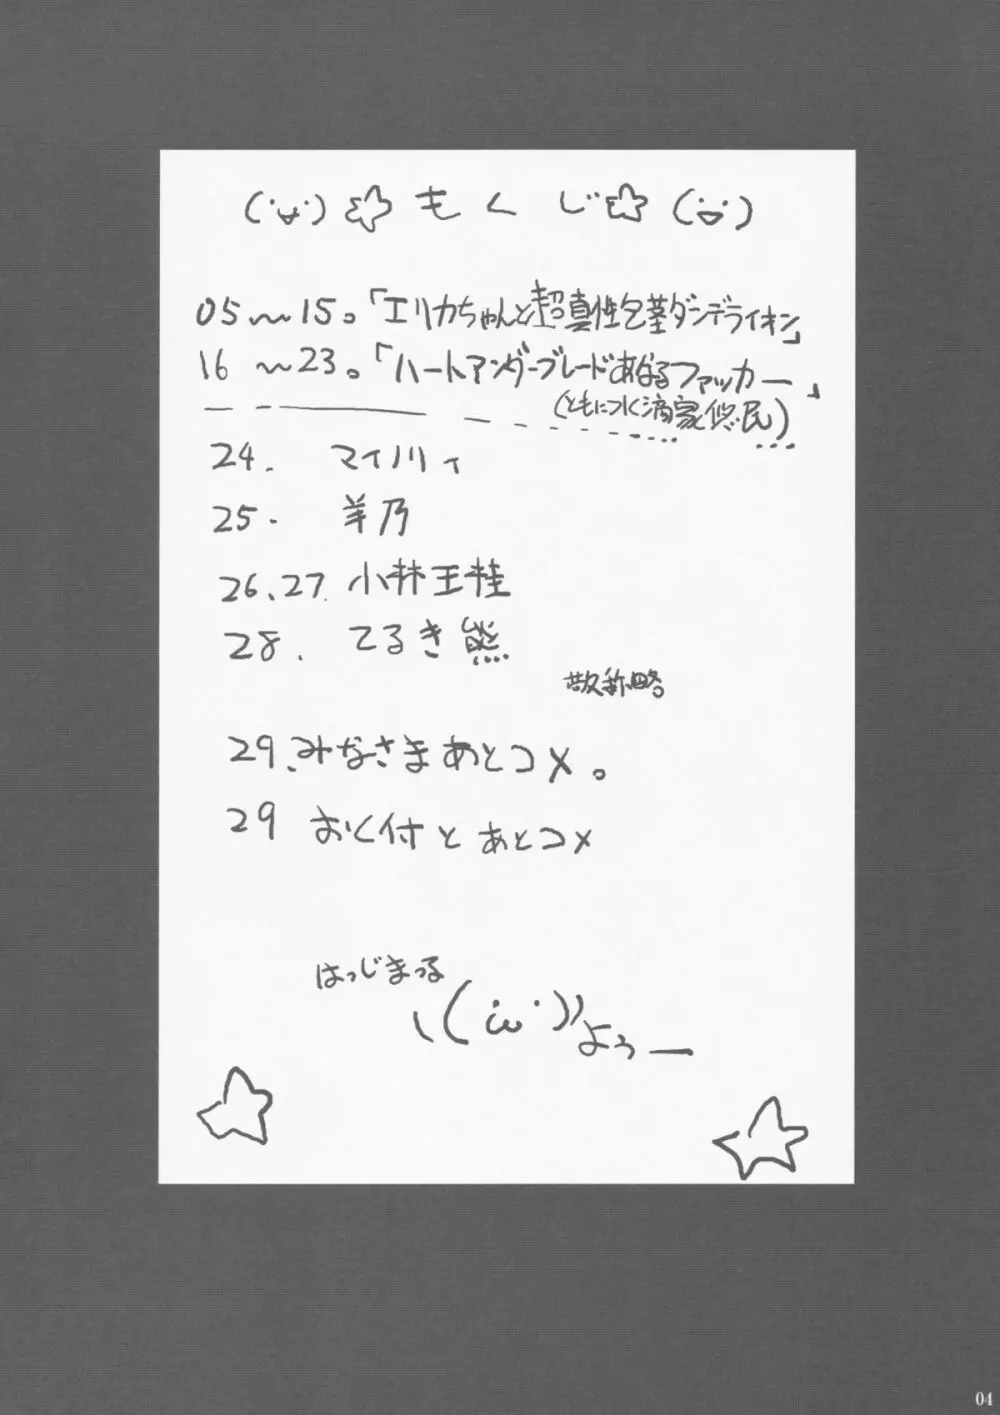 (･ᴗ･)☆もくじ☆(･ᴗ･)
05〜15。「エリカちゃんと超真性包茎ダンデライオン」
16 〜23。「ハートアンダーブレードあなるファッカー」
(ともに水滴家悠民)
24. マイノリィ
25. 羊乃
26、27. 小林王桂
28. てるき熊
敬称略
29、みなさまあとコメ。
29 おく付とあとコメ
はっじまっる
ヽ(･ω･)ﾉよぅー
04